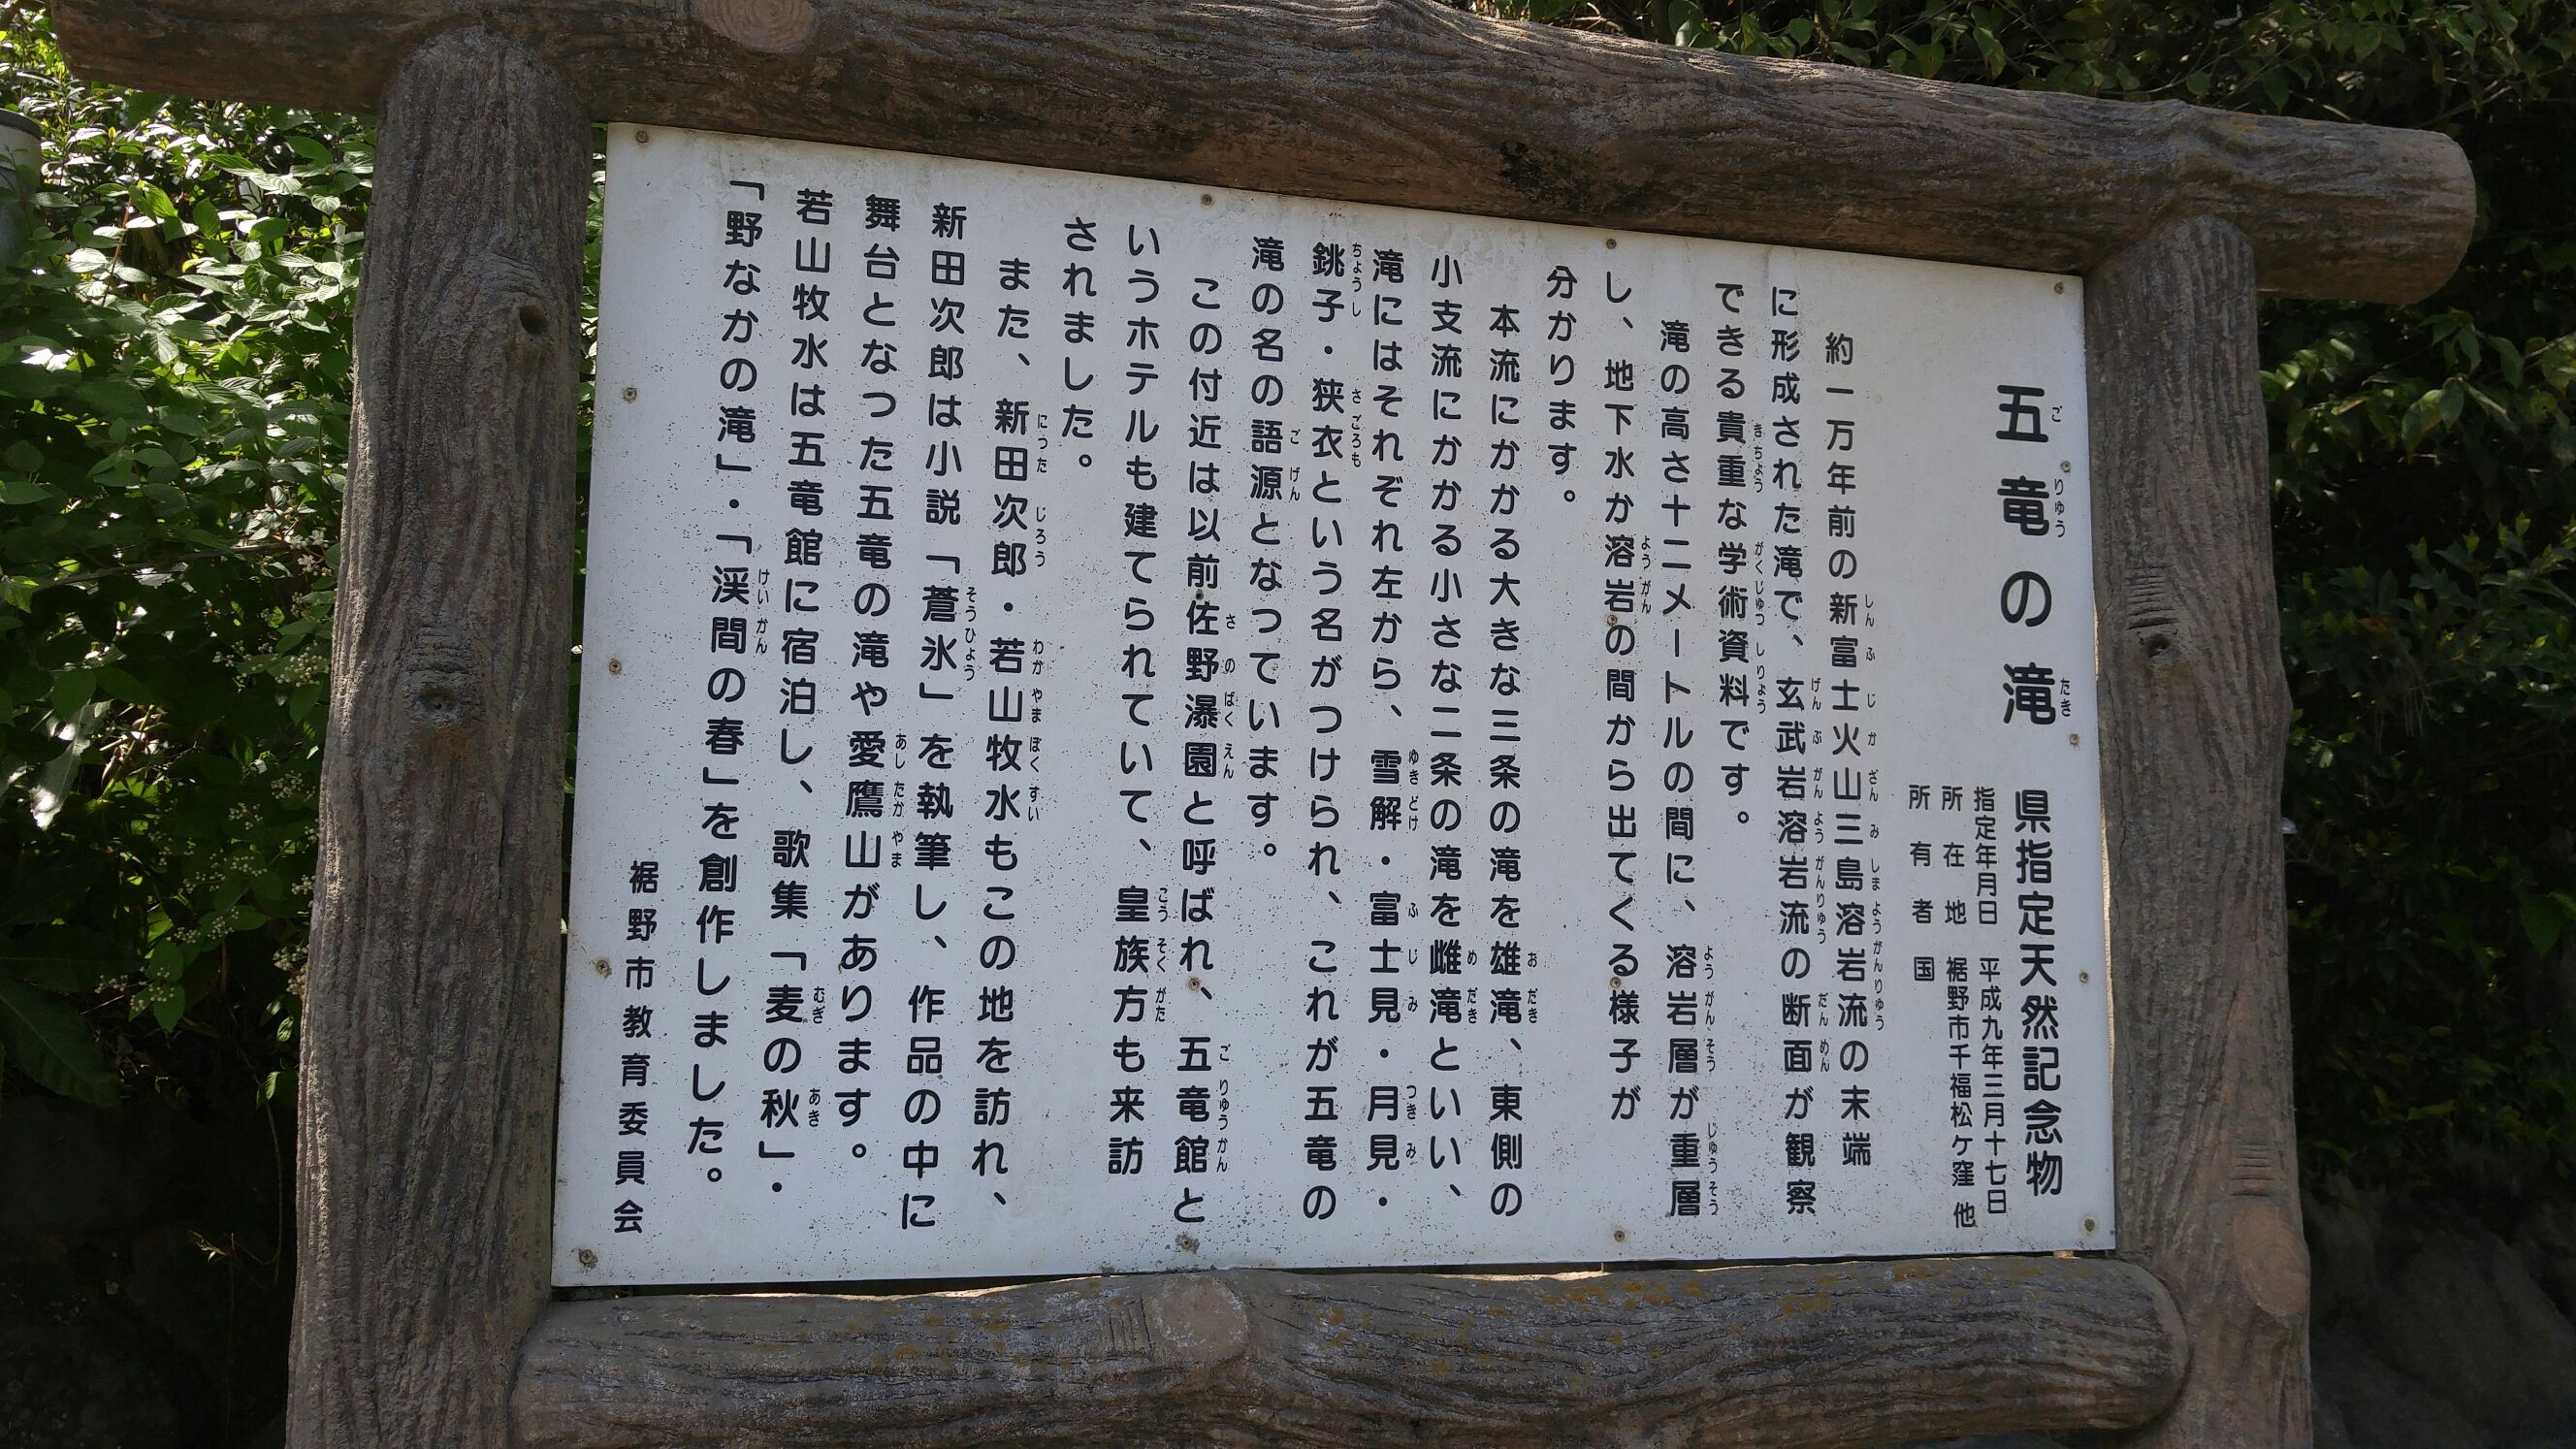 五竜の滝
県指定天然記念物
指定年月日 平成九年三月十七日
所在地 裾野市千福松ケ窪 他
所有者 国
約一万年前の新富士火山三島溶岩流の末端
に形成された滝で、玄武岩溶岩流の断面が観察
できる貴重な学術資料です。
滝の高さ十二メートルの間に、溶岩層が重層
し、地下水か溶岩の間から出てくる様子が
分かります。
本流にかかる大きな三条の滝を雄滝、東側の
小支流にかかる小さな二条の滝を雌滝といい、
滝にはそれぞれ左から、雪解・富士見・月見・
銚子・狭衣という名がつけられ、これが五竜の
滝の名の語源となっています。
この付近は以前佐野瀑園と呼ばれ、五竜館と
いうホテルも建てられていて、皇族方も来訪
されました。
また、新田次郎・若山牧水もこの地を訪れ、
新田次郎は小説「蒼氷」を執筆し、作品の中に
舞台となった五竜の滝や愛鷹山があります。
若山牧水は五竜館に宿泊し、歌集「麦の秋」・
「野なかの滝」・「渓間の春」を創作しました。
裾野市教育委員会